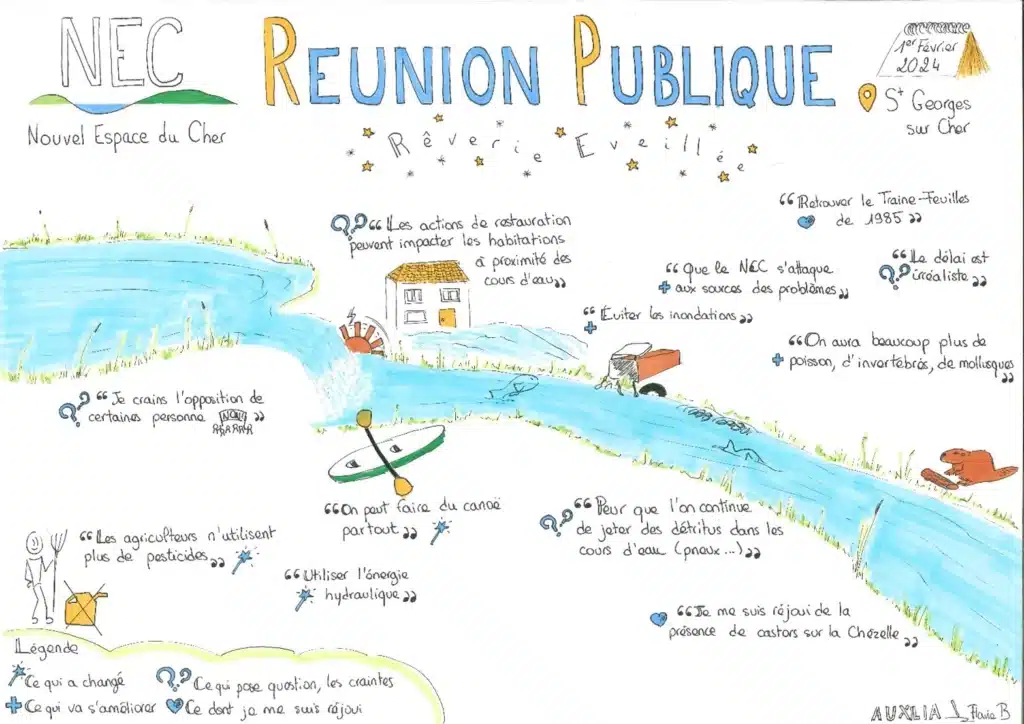 NEC
Nouvel Espace du Cher
REUNION PUBLIQUE
Rêverie Eveillée
1er Février
2024
St Georges
sur Cher
“Retrouver le Traine-Feuilles
de 1985”
?? “Les actions de restauration
peuvent impacter les habitations
à proximité des
cours d'eau”
“Que le NEC s'attaque
+ aux sources des problèmes”
“Le délai est
?? irréaliste”
“Éviter les inondations”
+
“On aura beaucoup plus de
+ poisson, d'invertébrés, de mollusques
”
?? “Je crains l'opposition de
certaines personne NON ”
“On peut faire du canoë
partout”
?? “Peur que l'on continue
de jeter des détritus dans les
cours d'eau (pneux...)”
“Les agriculteurs n'utilisent
plus de pesticides”
“Utiliser l'énergie
hydraulique”
“Je me suis réjoui de la
présence de castors sur la Chézelle”
Légende
Ce qui a changé
?? Ce qui pose question, les craintes
+ Ce qui va s'améliorer
Ce dont je me suis réjoui
AUXILIA Flavie B